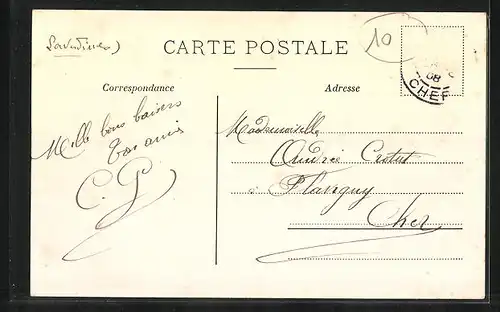 10
CARTE POSTALE
Correspondance
Adresse
08
CHER
Mille bons baisers
Ton amie
C. P
Mademoiselle
Andrée
à Flavigny
Cher